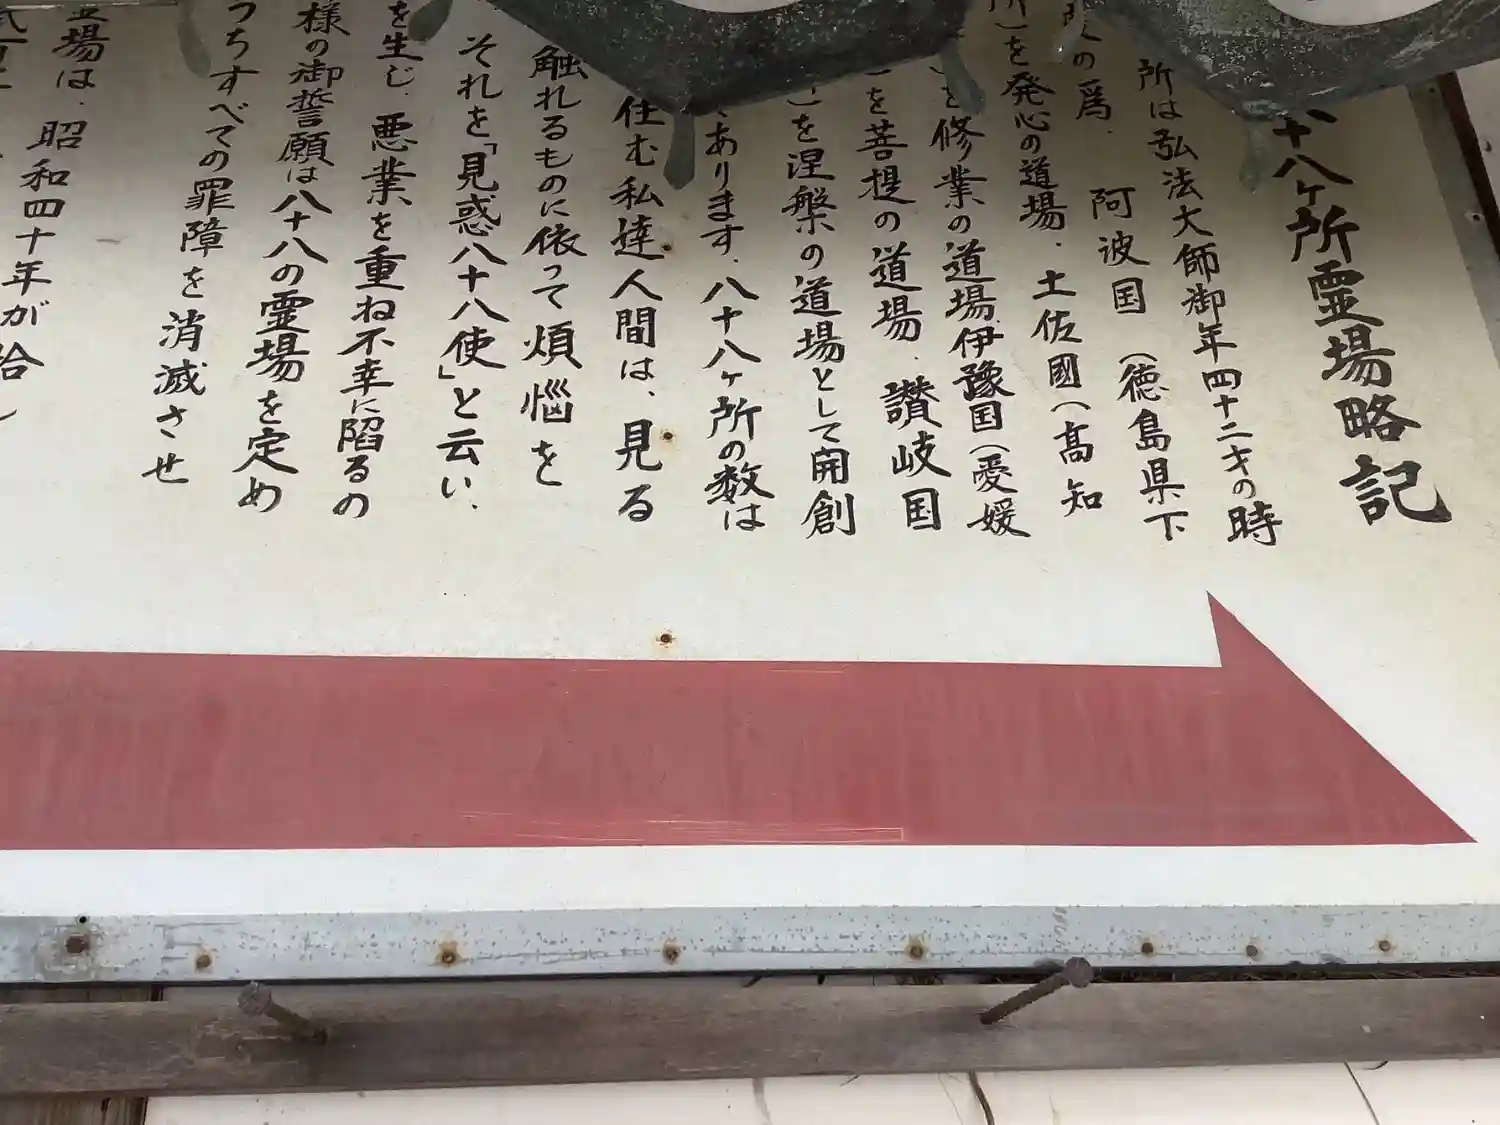 十八ヶ所霊場略記
所は弘法大師御年四十二才の時
の為、阿波国（徳島県下
所）を発心の道場、土佐國（高知
を修業の道場、伊豫国（愛媛
）を菩提の道場、讃岐国
）を涅槃の道場として開創
あります。八十八ヶ所の数は
住む私達人間は、見る
触れるものに依って煩悩を
それを「見惑八十八使」と云い、
を生じ、悪業を重ね不幸に陥るの
様の御誓願は八十八の霊場を定め
うちすべての罪障を消滅させ
場は、昭和四十年が